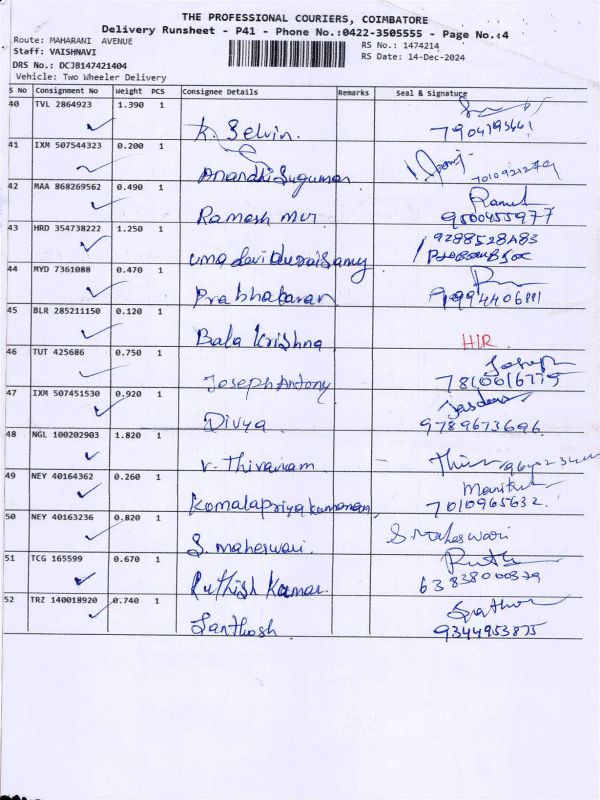 THE PROFESSIONAL COURIERS, COIMBATORE
Delivery Runsheet - P41 - Phone No.:0422-3505555 - Page No.:4
Route: MAHARANI AVENUE
RS No.: 1474214
Staff: VAISHNAVI
RS Date: 14-Dec-2024
DRS No.: DCJB147421404
Vehicle: Two Wheeler Delivery
S No Consignment No Weight PCS Consignee Details Remarks Seal & Signature
40 TVL 2864923 1.390 1
K. Selvin.
41 IXM 507544323 0.200 1
Anandhi Sugumar
42 MAA 868269562 0.490 1
Ramesh mvr 9500455977
43 HRD 354738222 1.250 1
uma devi duraisamy
44 MYD 7361088 0.470 1
Prabhakaran
45 BLR 285211150 0.120 1
Bala Krishna
46 TUT 425686 0.750 1
Joseph Antony Joseph
47 IXM 507451530 0.920 1
Divya 9789673696
48 NGL 100202903 1.820 1
V. Thivanam
49 NEY 40164362 0.260 1
7010965632
50 NEY 40163236 0.820 1
S. maheswari. S maheswari
51 TCG 165599 0.670 1
Ruthish Kumar. 6383800079
52 TRZ 140018920 0.740 1
Santhosh 9344953875